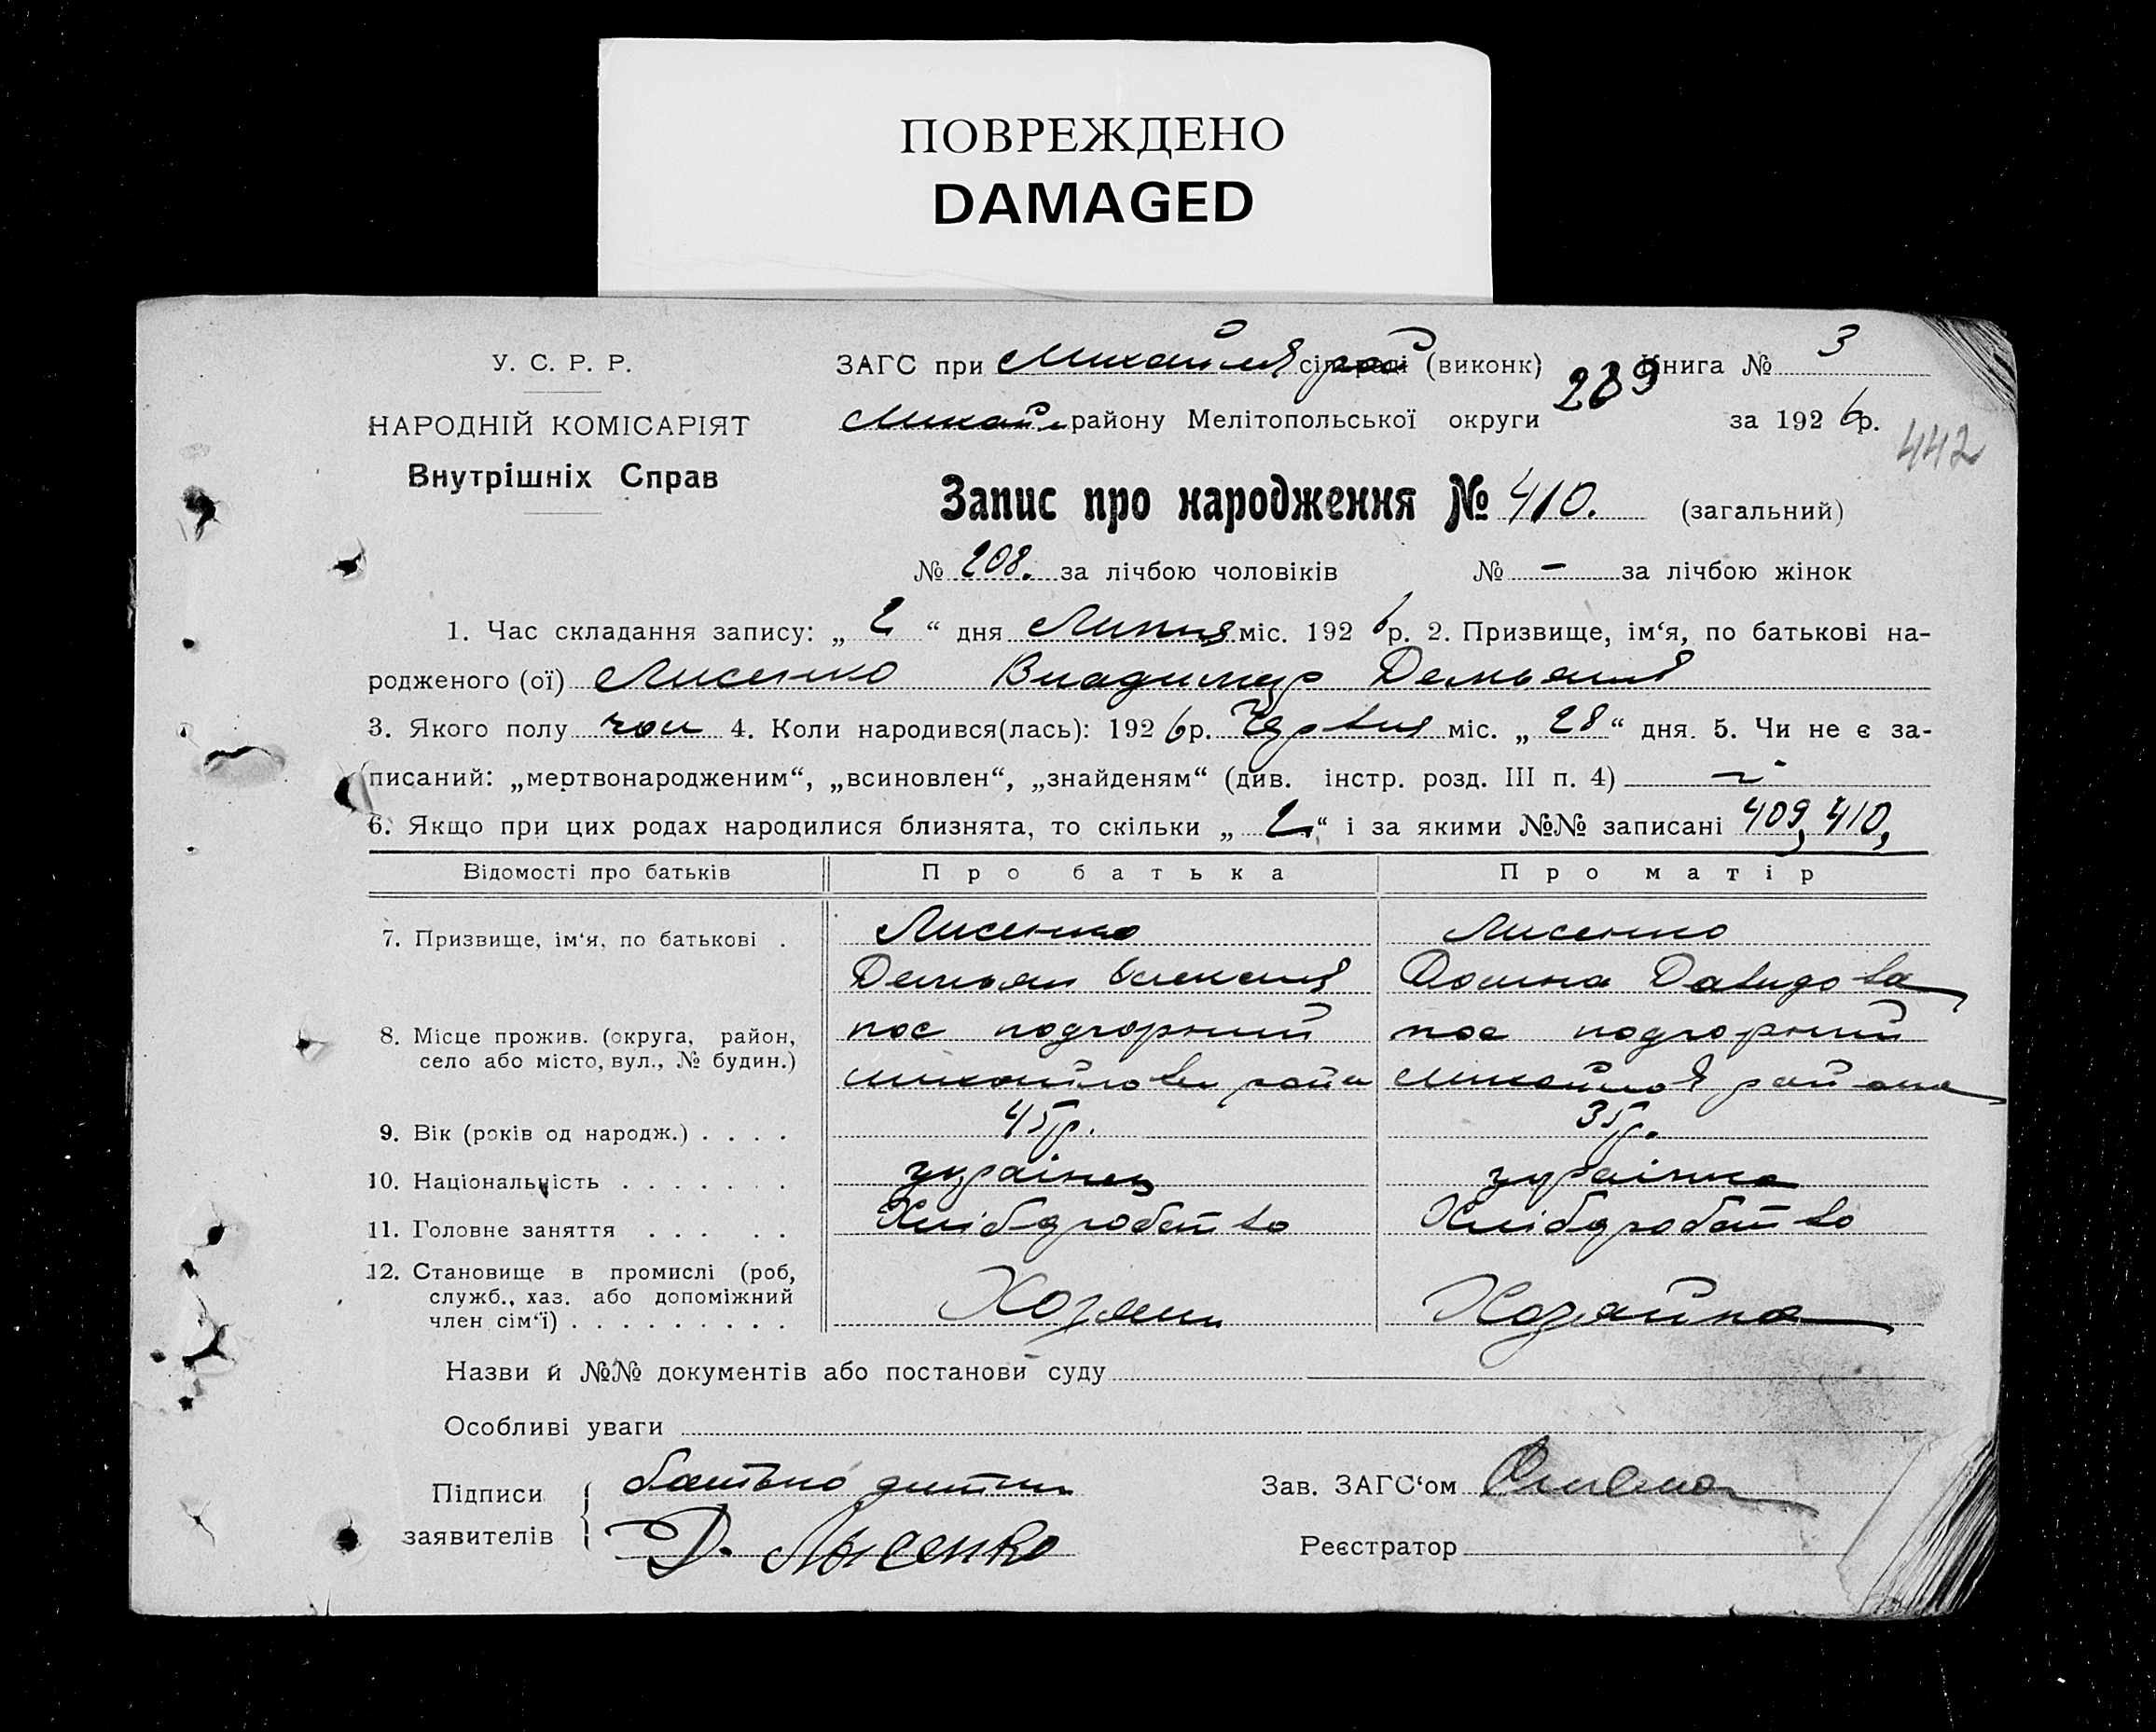 ПОВРЕЖДЕНО
DAMAGED
У. С. Р. Р.
НАРОДНІЙ КОМІСАРІЯТ
Внутрішніх Справ
ЗАГС при Михайлів сільраді рай (виконк) Книга № 3
289
Михайл району Мелітопольської округи за 1926 р.
442
Запис про народження № 410. (загальний)
№ 208. за лічбою чоловіків № — за лічбою жінок
1. Час складання запису: „ 2 “ дня Липня міс. 1926 р. 2. Призвище, ім‘я, по батькові на-
родженого (ої) Лисенко Владимир Демьянів
3. Якого полу чол 4. Коли народився(лась): 1926 р. Червня міс. „ 28 “ дня. 5. Чи не є за-
писаний: „мертвонародженим“, „всиновлен“, „знайденям“ (див. інстр. розд. III п. 4)
6. Якщо при цих родах народилися близнята, то скільки „ 2 “ і за якими №№ записані 409, 410,
Відомості про батьків Про батька Про матір
7. Призвище, ім‘я, по батькові . Лисенко Лисенко
Демьян Давидова
8. Місце прожив. (округа, район, пос подгорний пос подгорний
село або місто, вул., № будин.) михайлов района
9. Вік (років од народж.) . . . . 45 р. 35 р.
10. Національність . . . . . . . українец українка
11. Головне заняття . . . . . Хлібдробатво Хлібдробатво
12. Становище в промислі (роб, Хозяин Хозяйка
служб., хаз. або допоміжний
член сім‘ї) . . . . . . . . .
Назви й №№ документів або постанови суду
Особливі уваги
Підписи батько дитини
заявителів Д. Лысенко
Зав. ЗАГС‘ом
Реєстратор